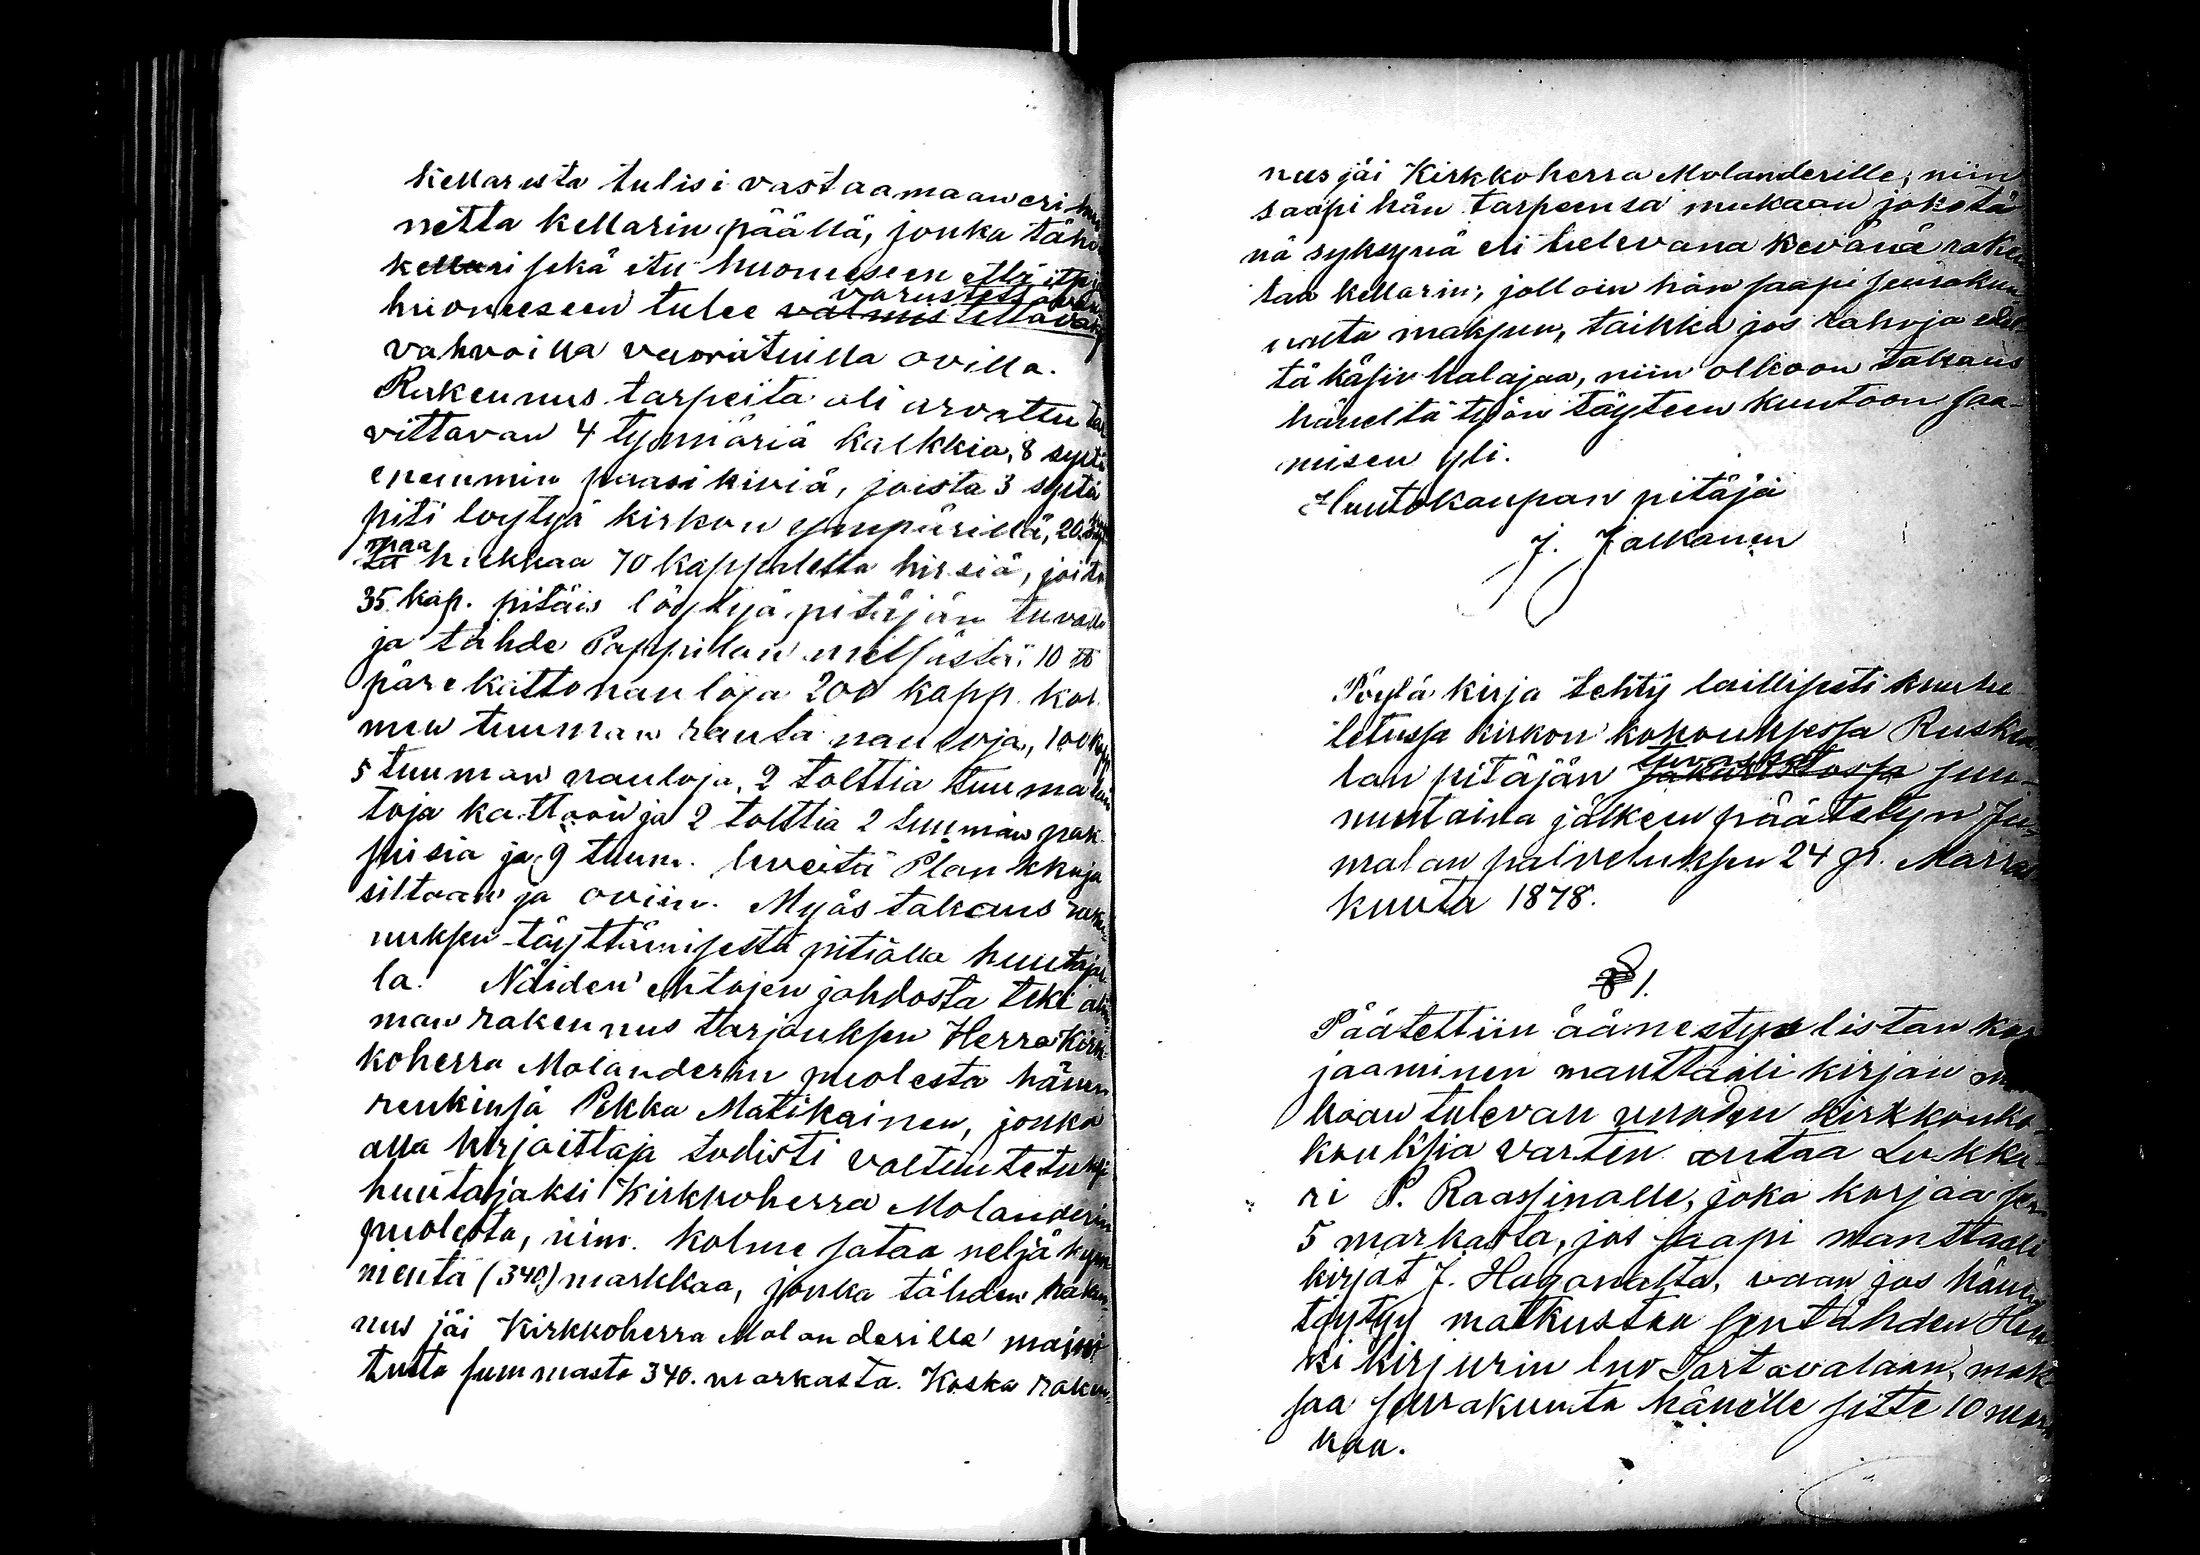 kellarista tulisi vastaamaan eri huo
netta kellarin päällä, jonka täh
kellari sekä etu huoneeseen että itse
huoneeseen tulee varustettavan
vahvoilla vuoratuilla ovilla.
Rakennus tarpeita oli arvattu tar
vittavan 4 tynnöriä kalkkia, 8 syltä
enemmin paasi kiviä, joista 3 syltä
piti loytyä kirkon ympärillä, 20
maa hiekkaa 70 kappaletta hirsiä, joita
35. kap. pitäis löytyä pitäjän tuvalla
ja tähde Pappilan metsästä: 10 ℔
päre katto nauloja 200 kapp. kol
men tuuman rauta nauloja, 100 kapp
5 tuuman nauloja, 2 tolttia tuuma lau
toja kattoon ja 2 tolttia 2 tuuman pak
suisia ja 9 tuum. leveitä Plankkuja
siltaan ja oviin. Myös takaus raken
nuksen täyttämisestä pitiälla huutajal
la. Näiden ehtojen johdosta teki alim
man rakennus tarjouksen Herra Kirk
koherra Molanderin puolesta hänen
renkinsä Pekka Matikainen, jonka
alla kirjoittaja todisti valtuutetuksi
huutajaksi Kirkkoherra Molanderin
puolesta, nim. kolme sataa neljäkym
mentä (340) markkaa, jonka tähden raken
nus jäi Kirkkoherra Molanderille maini
tusta summasta 340. markasta. Koska raken
nus jäi Kirkkoherra Molanderille, niin
saapi hän tarpeensa mukaan joko tä
nä syksynä eli tulevana kevänä raken
taa kellarin; jolloin hän saapi seurakun
nalta maksun, taikka jos rahoja edel
tä käsin halajaa, niin olkoon takaus
häneltä työn täyteen kuntoon saa-
misen yli.
Huutokaupan pitäjä
J. Jalkanen
Pöytä kirja tehty laillisesti kuulu
tetussa kirkon kokouksessa Ruskea
lan pitäjän tuvassa sun-
nuntaina jälkeen päätetyn Ju
malan palveluksen 24 p. Marras
kuuta 1878.
§ 1.
Päätettiin äänestys listan kor
jaaminen manttaali kirjan mu
kaan tulevan vuoden kirkkonko
kouksia varten antaa Lukka-
ri P. Raassinalle, joka korjaa sen
5 markasta, jos saapi manttaali
kirjat J. Hagonalta, vaan jos hänen
täytyy matkustaa sentähden Hen
ki kirjurin luo Sortavalaan, mak
saa seurakunta hänelle sitte 10 mark
kaa.